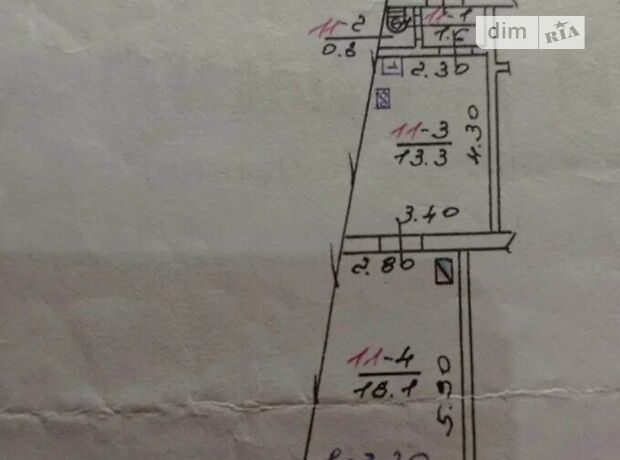 11-2
0.8
11-1
dim RIA
2.30
11-3
13.3
4.30
3.40
2.80
11-4
18.1
5.90